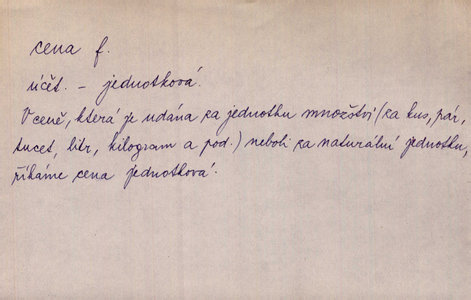 cena f.
účet. – jednotková.
V ceně, která je udána za jednotku množství (za kus, pár,
tucet, litr, kilogram a pod.) neboli za naturální jednotku,
říkáme cena jednotková.